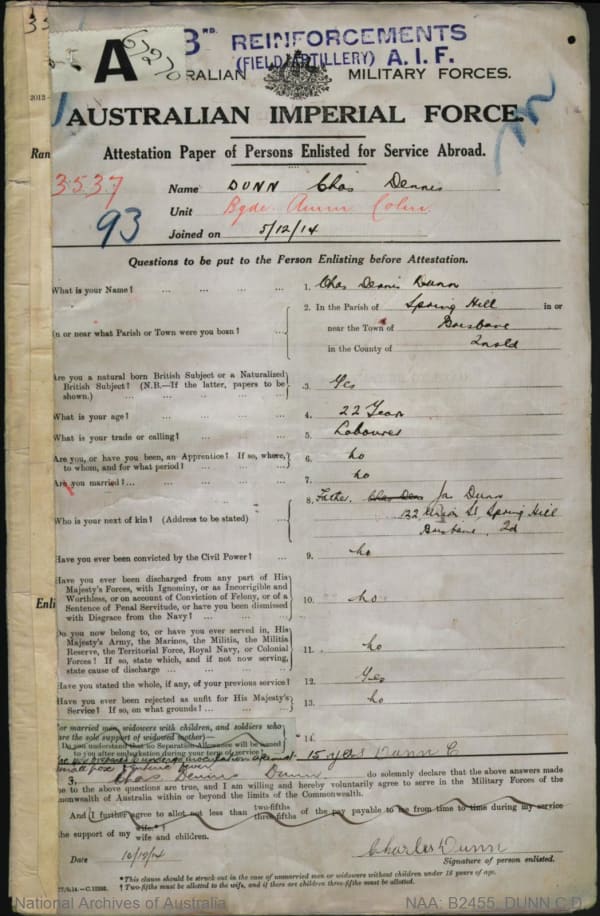 3RD. REINFORCEMENTS
(FIELD ARTILLERY) A. I. F.
A
RALIAN MILITARY FORCES.
2012
AUSTRALIAN IMPERIAL FORCE.
Ran
Attestation Paper of Persons Enlisted for Service Abroad.
3537
Name DUNN Chas Dennis
Unit Bgde. Amm Colm.
93
Joined on 5/12/14
Questions to be put to the Person Enlisting before Attestation.
What is your Name? 1. Chas Dennis Dunn
2. In the Parish of Spring Hill in or
In or near what Parish or Town were you born? near the Town of Brisbane
in the County of Qnsld
Are you a natural born British Subject or a Naturalized
British Subject? (N.B.—If the latter, papers to be
shown.) 3. Yes
What is your age? 4. 22 Years
What is your trade or calling? 5. Labourer
Are you, or have you been, an Apprentice? If so, where,
to whom, and for what period? 6. No
Are you married? 7. No
8. Father. Jas Dunn
Who is your next of kin? (Address to be stated) 132 Union St Spring Hill
Brisbane, Qd
Have you ever been convicted by the Civil Power? 9. No
Have you ever been discharged from any part of His
Majesty's Forces, with Ignominy, or as Incorrigible and
Worthless, or on account of Conviction of Felony, or of a
Sentence of Penal Servitude, or have you been dismissed
with Disgrace from the Navy? 10. No
Enli
Do you now belong to, or have you ever served in, His
Majesty's Army, the Marines, the Militia, the Militia
Reserve, the Territorial Force, Royal Navy, or Colonial
Forces? If so, state which, and if not now serving,
state cause of discharge 11. No
Have you stated the whole, if any, of your previous service? 12. Yes
Have you ever been rejected as unfit for His Majesty's
Service? If so, on what grounds? 13. No
For married men, widowers with children, and soldiers who
are the sole support of widowed mother— 14.
Do you understand that no Separation Allowance will be issued
to you after embarkation during your term of service?
inoculation against 15. yes Dunn C
small pox & enteric fever
3. Chas. Dennis Dunn. do solemnly declare that the above answers made
me to the above questions are true, and I am willing and hereby voluntarily agree to serve in the Military Forces of the
monwealth of Australia within or beyond the limits of the Commonwealth.
And I further agree to allot not less than two-fifths three-fifths of the pay payable to me from time to time during my service
the support of my wife* wife and children.
Date 10/12/14 Charles Dunn
Signature of person enlisted.
*This clause should be struck out in the case of unmarried men or widowers without children under 18 years of age.
† Two-fifths must be allotted to the wife, and if there are children three-fifths must be allotted.
National Archives of Australia NAA: B2455, DUNN C D